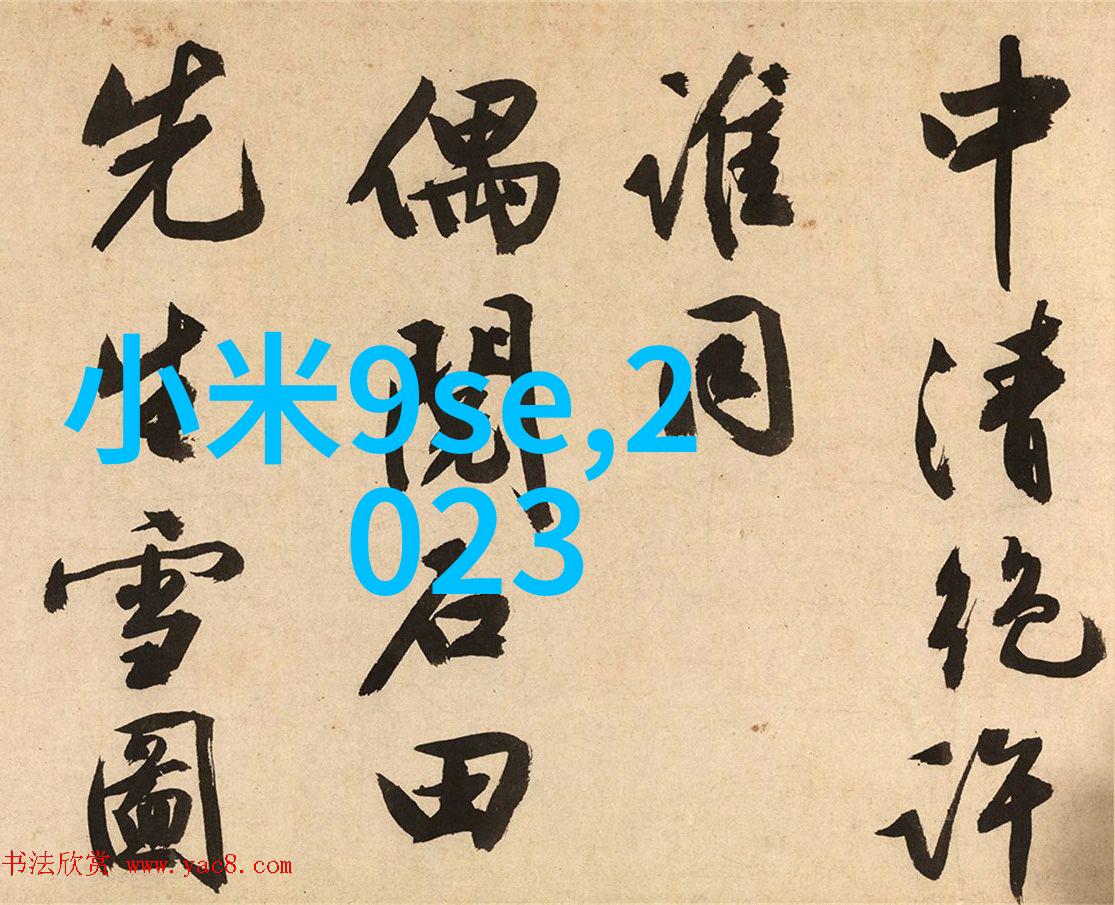 中清绝许
谁同
偶閱石田
先生雪圖
小米9se,2
023
书法欣赏 www.yac8.com